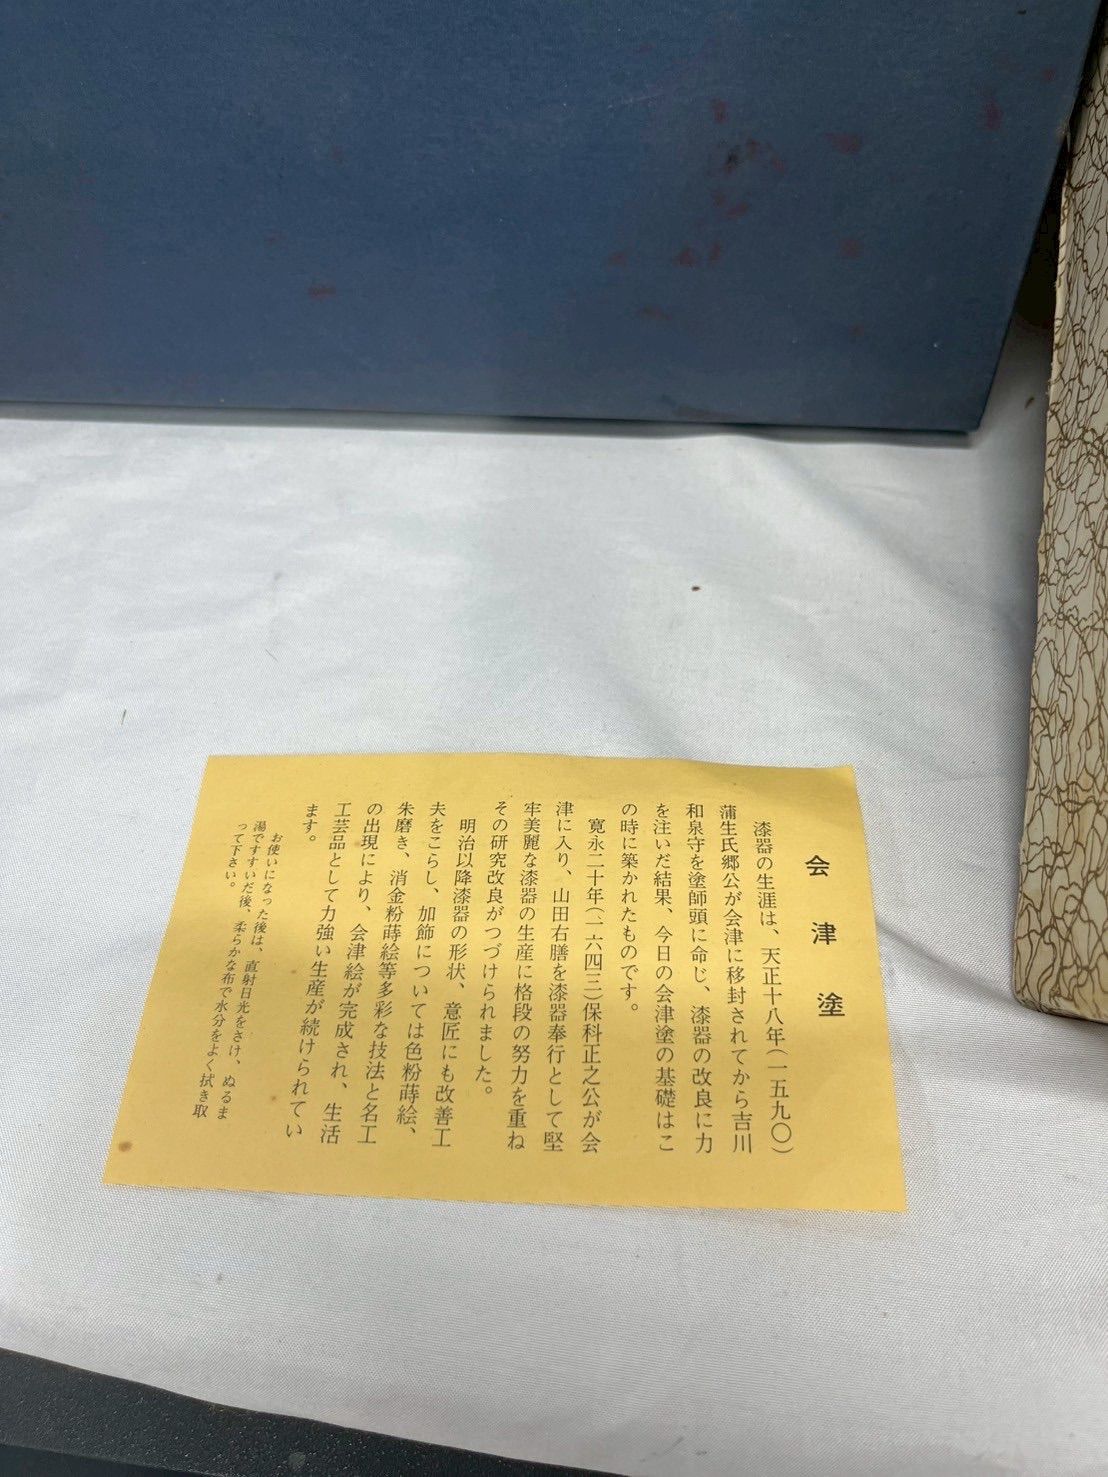 会津塗
漆器の生涯は、天正十八年(一五九〇)
蒲生氏郷公が会津に移封されてから吉川
和泉守を塗師頭に命じ、漆器の改良に力
を注いだ結果、今日の会津塗の基礎はこ
の時に築かれたものです。
寛永二十年(一六四三)保科正之公が会
津に入り、山田右膳を漆器奉行として堅
牢美麗な漆器の生産に格段の努力を重ね
その研究改良がつづけられました。
明治以降漆器の形状、意匠にも改善工
夫をこらし、加飾については色粉蒔絵、
朱磨き、消金粉蒔絵等多彩な技法と名工
の出現により、会津絵が完成され、生活
工芸品として力強い生産が続けられてい
ます。
お使いになった後は、直射日光をさけ、ぬるま
湯ですすいだ後、柔らかな布で水分をよく拭き取
って下さい。